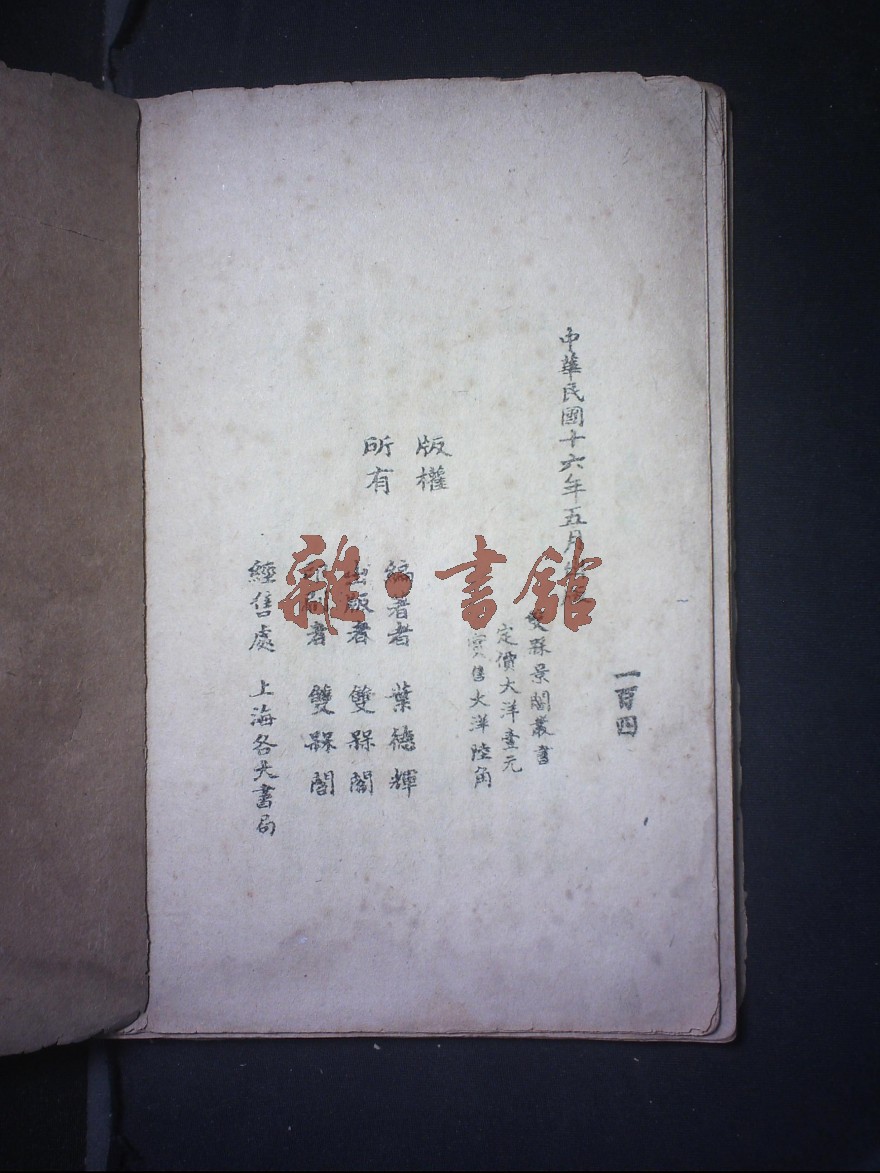 一百四
中華民國十六年五月
雙槑景闇叢書
定價大洋壹元
實售大洋陸角
版權
所有
編著者 葉德輝
出版者 雙槑闇
印刷者 雙槑闇
經售處 上海各大書局
雜·書館